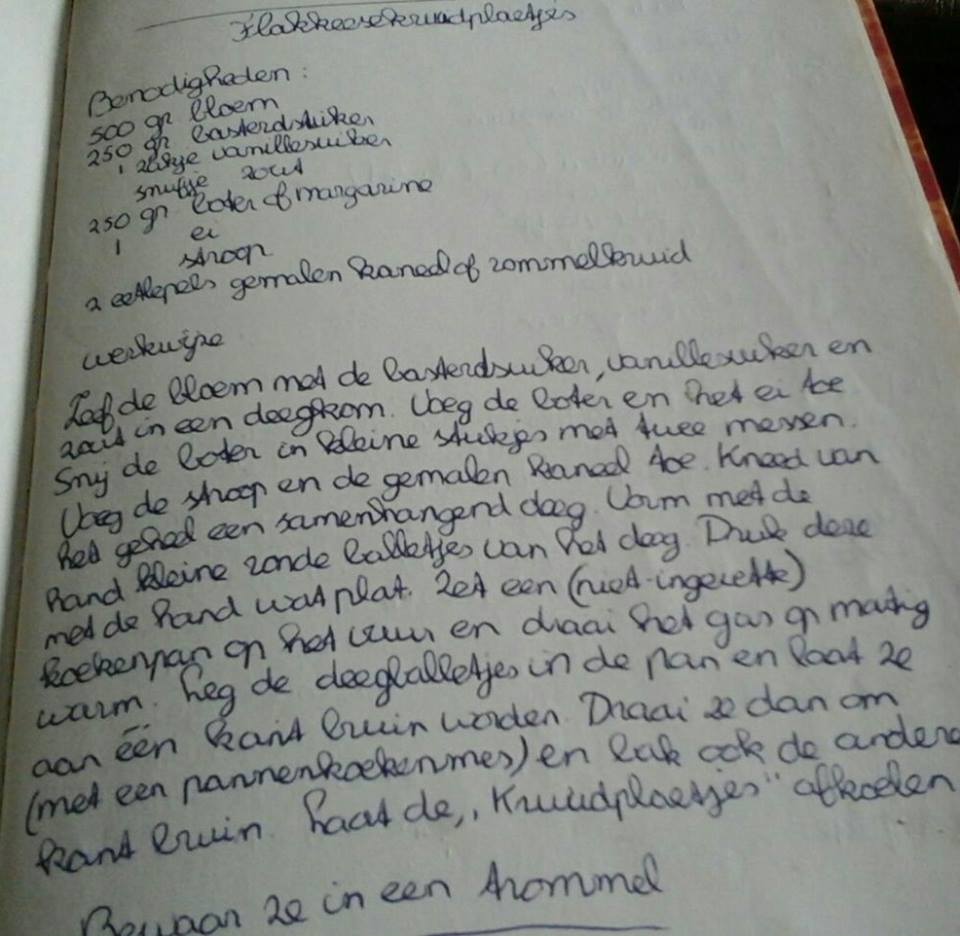 Flakkeesekruudplaetjes
Benodigheden:
500 gr bloem
250 gr basterdsuiker
1 zakje vanillesuiker
snufje zout
250 gr boter of margarine
1 ei
stroop
2 eetlepels gemalen kaneel of rommelkruid
werkwijze
Zeef de bloem met de basterdsuiker, vanillesuiker en
zout in een deegkom. Voeg de boter en het ei toe
Snij de boter in kleine stukjes met twee messen.
Voeg de stroop en de gemalen kaneel toe. Kneed van
het geheel een samenhangend deeg. Vorm met de
hand kleine ronde balletjes van het deeg. Druk deze
met de hand wat plat. Zet een (niet-ingevette)
koekenpan op het vuur en draai het gas op matig
warm. Leg de deegballetjes in de pan en laat ze
aan één kant bruin worden. Draai ze dan om
(met een pannenkoekenmes) en bak ook de andere
kant bruin. Laat de ,,Kruudplaetjes" afkoelen
Bewaar ze in een trommel